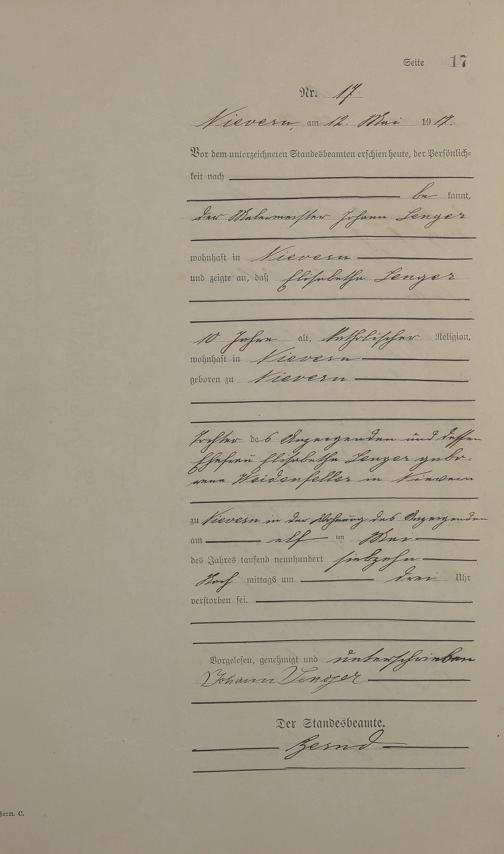 Seite 17
Nr. 17
Nievern, am 12. Mai 1917.
Vor dem unterzeichneten Standesbeamten erschien heute, der Persönlich-
keit nach
be kannt,
der Malermeister Johann Senger
wohnhaft in Nievern
und zeigte an, daß Elisabetha Senger
10 Jahre alt, katholischer Religion,
wohnhaft in Nievern
geboren zu Nievern
Tochter des Anzeigenden und dessen
Ehefrau Elisabetha Senger gebo-
rene Weidenfeller in Nievern
zu Nievern in der Wohnung des Anzeigenden
am elf ten Mai
des Jahres tausend neunhundert siebzehn
Nach mittags um drei Uhr
verstorben sei.
Vorgelesen, genehmigt und unterschrieben
Johann Senger
Der Standesbeamte.
Form. C.